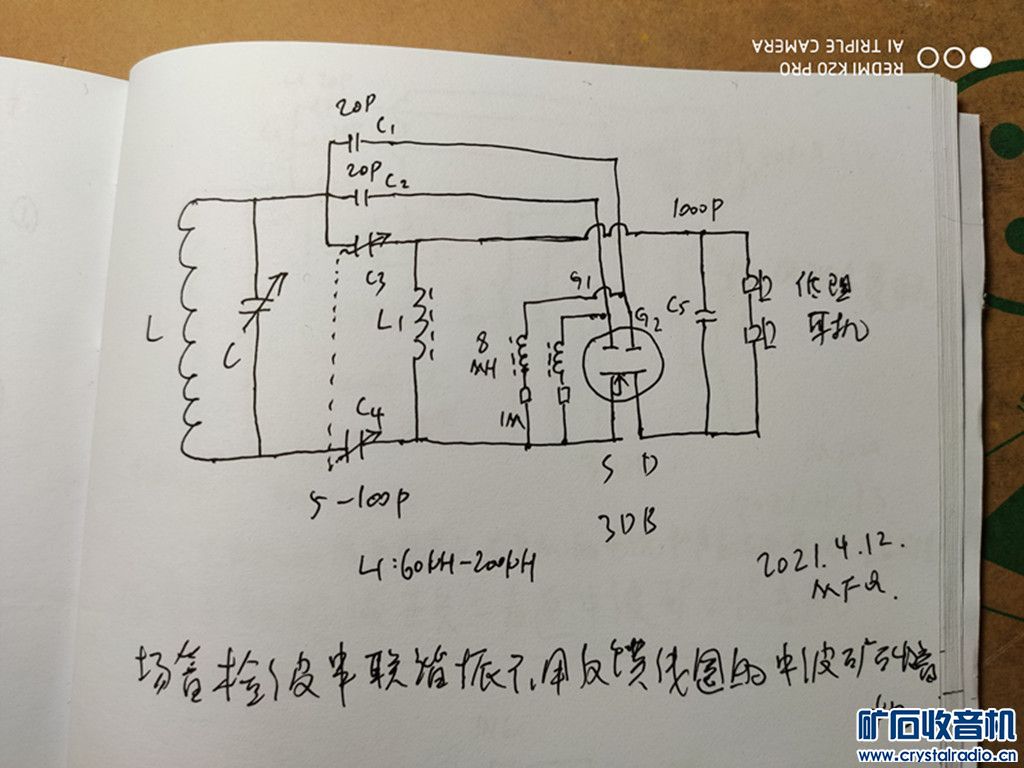 REDMI K20 PRO
AI TRIPLE CAMERA
20P
C1
20P
C2
1000P
C3
G1
L1
G2
C5
低阻
耳机
L
C
8
MH
1M
C4
S D
5-100P
3DB
L1:60μH-200μH
2021.4.12.
场管检波串联谐振不用反馈线圈的中波矿石收音
矿石收音机
www.crystalradio.cn